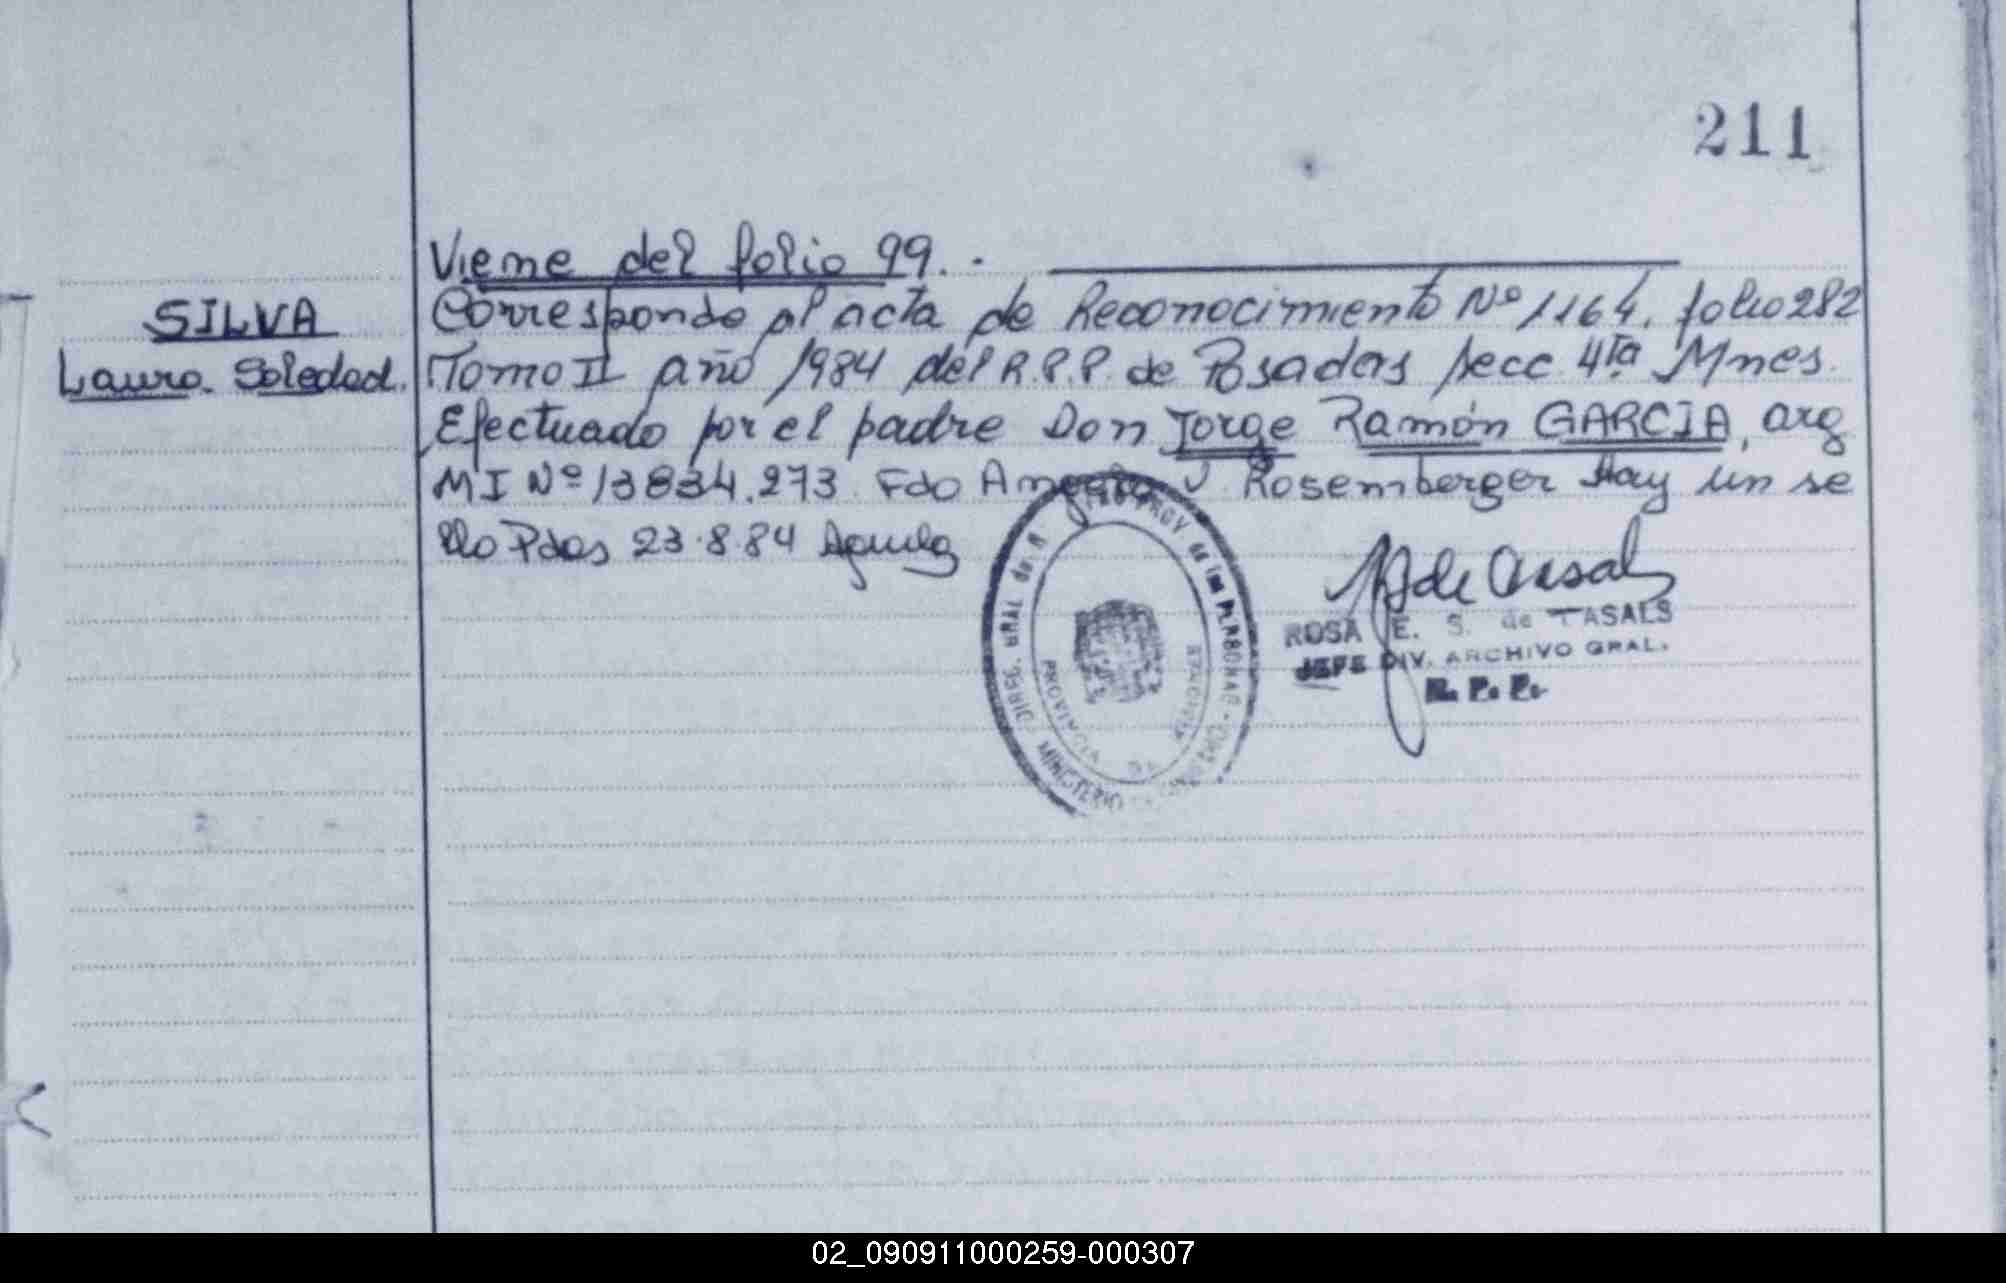 211
Viene del folio 99. -
SILVA
Laura Soledad.
Corresponde al acta de Reconocimiento Nº 1164. folio 282
Tomo II año 1984 del R.P.P. de Posadas secc 4ta Mnes.
Efectuado por el padre Don Jorge Ramón GARCIA, arg
MI Nº 13834.273. Fdo Angela J. Rosemberger Hay un se
llo Pdas 23.8.84 Aguila
ROSA E. S. de CASALS
JEFE DIV. ARCHIVO GRAL.
R. P. P.
DIREC. GRAL del R PROV de las PERSONAS
MINISTERIO
PROVINCIA DE MISIONES
02_090911000259-000307